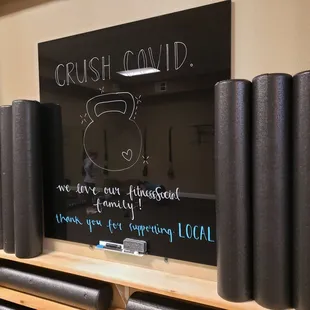 CRUSH COVID.
we love our fitnessocial
family!
thank you for supporting LOCAL